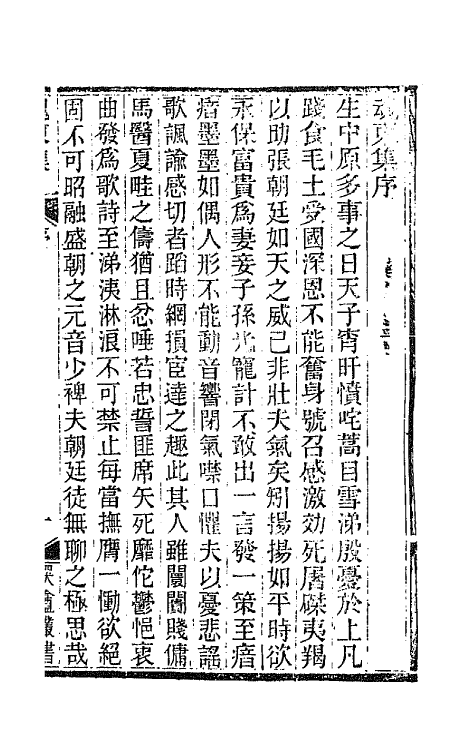 魂東集序
生中原多事之日天子宵旰憤咤蒿目雪涕殷憂於上凡
踐食毛土受國深恩不能奮身號召感激効死屠磔夷羯
以助張朝廷如天之威已非壯夫氣矣矧揚揚如平時欲
永保富貴爲妻妾子孫光寵計不敢出一言發一策至瘖
瘖墨墨如偶人形不能動音響閉氣噤口懼夫以憂悲謠
歌諷諭感切者蹈時網損宦達之趣此其人雖闤闠賤傭
馬醫夏畦之儔猶且忿唾若忠誓匪席矢死靡佗鬱悒衷
曲發爲歌詩至涕洟淋浪不可禁止每當撫膺一慟欲絕
固不可昭融盛朝之元音少裨夫朝廷徒無聊之極思哉
東集
序
一
叢書